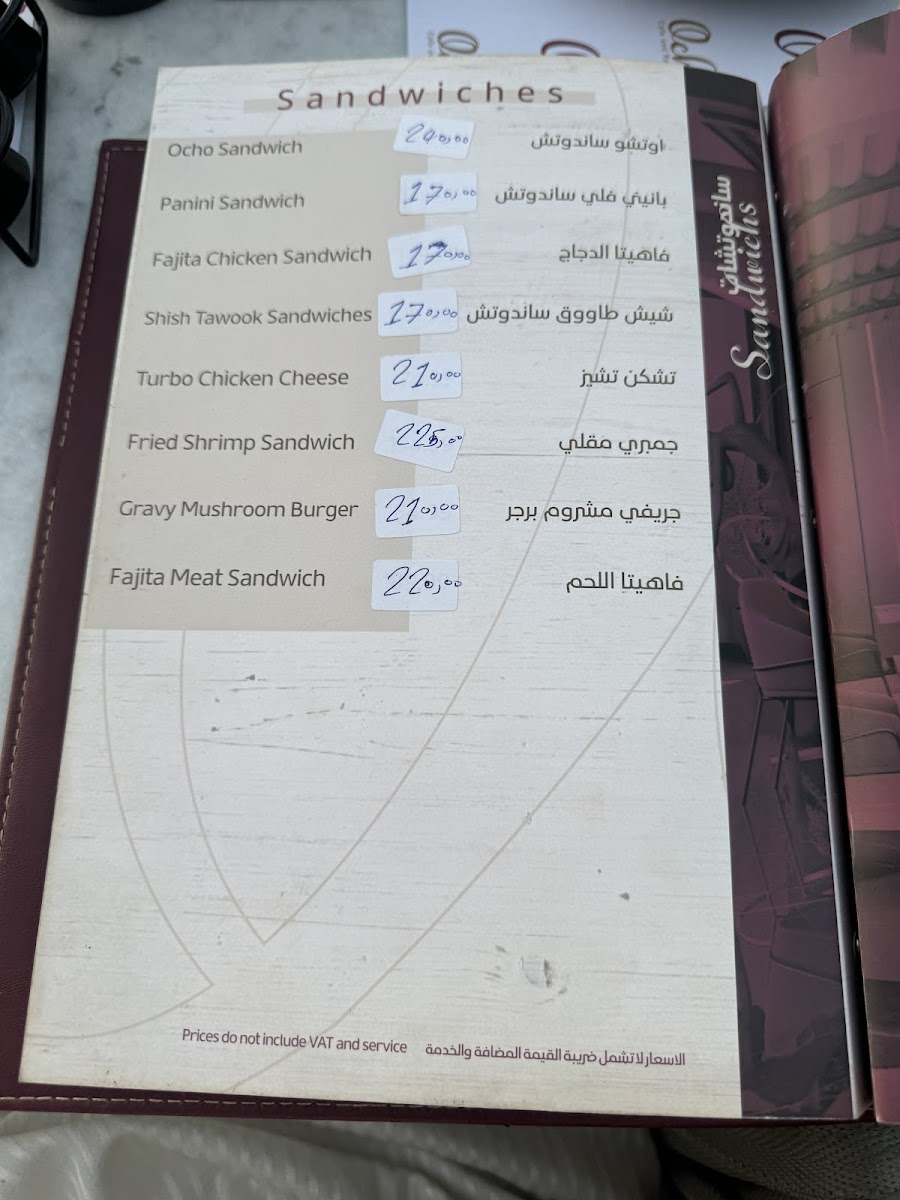 Sandwiches
Ocho Sandwich 240,00 اوتشو ساندوتش
Panini Sandwich 170,00 بانيني فلي ساندوتش
Fajita Chicken Sandwich 170,00 فاهيتا الدجاج
Shish Tawook Sandwiches 170,00 شيش طاووق ساندوتش
Turbo Chicken Cheese 210,00 تشكن تشيز
Fried Shrimp Sandwich 225,00 جمبري مقلي
Gravy Mushroom Burger 210,00 جريفي مشروم برجر
Fajita Meat Sandwich 220,00 فاهيتا اللحم
Prices do not include VAT and service الاسعار لا تشمل ضريبة القيمة المضافة والخدمة
ساندوتشات
Sandwichs